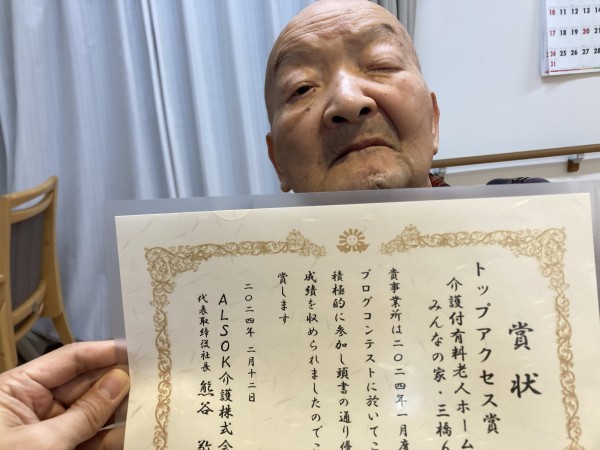 賞状
トップアクセス賞
介護付有料老人ホーム
みんなの家・三橋
貴事業所は二〇二四年一月度
ブログコンテストに於いてこ
積極的に参加し頭書の通り優
成績を収められましたのでこ
賞します
二〇二四年 二月十二日
ALSOK介護株式会
代表取締役社長 熊谷 敬
10 11 12 13 14
17 18 19 20 21
24 25 26 27 28
31